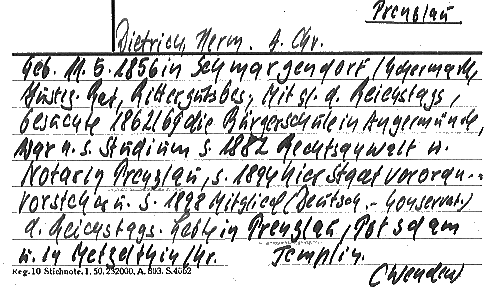 Prenzlau
Dietrich, Herm. A. Chr.
Geb. 11.5.1856 in Schmargendorf/Uckermark,
Justiz-Rat, Rittergutsbes., Mitgl. d. Reichstags,
besuchte 1862/69 die Bürgerschule in Angermünde,
war n. s. Studium s. 1882 Rechtsanwalt u.
Notar in Prenzlau, s. 1894 hier Stadtverordn.-
vorsteher u. s. 1898 Mitglied (Deutsch.-Konservativ)
d. Reichstags. Lebte in Prenzlau, Potsdam
u. in Metzelthin/Kr. Templin.
(Wenden)
Reg. 10 Stichnote. 1. 50. 232000. A. 803. S. 4662